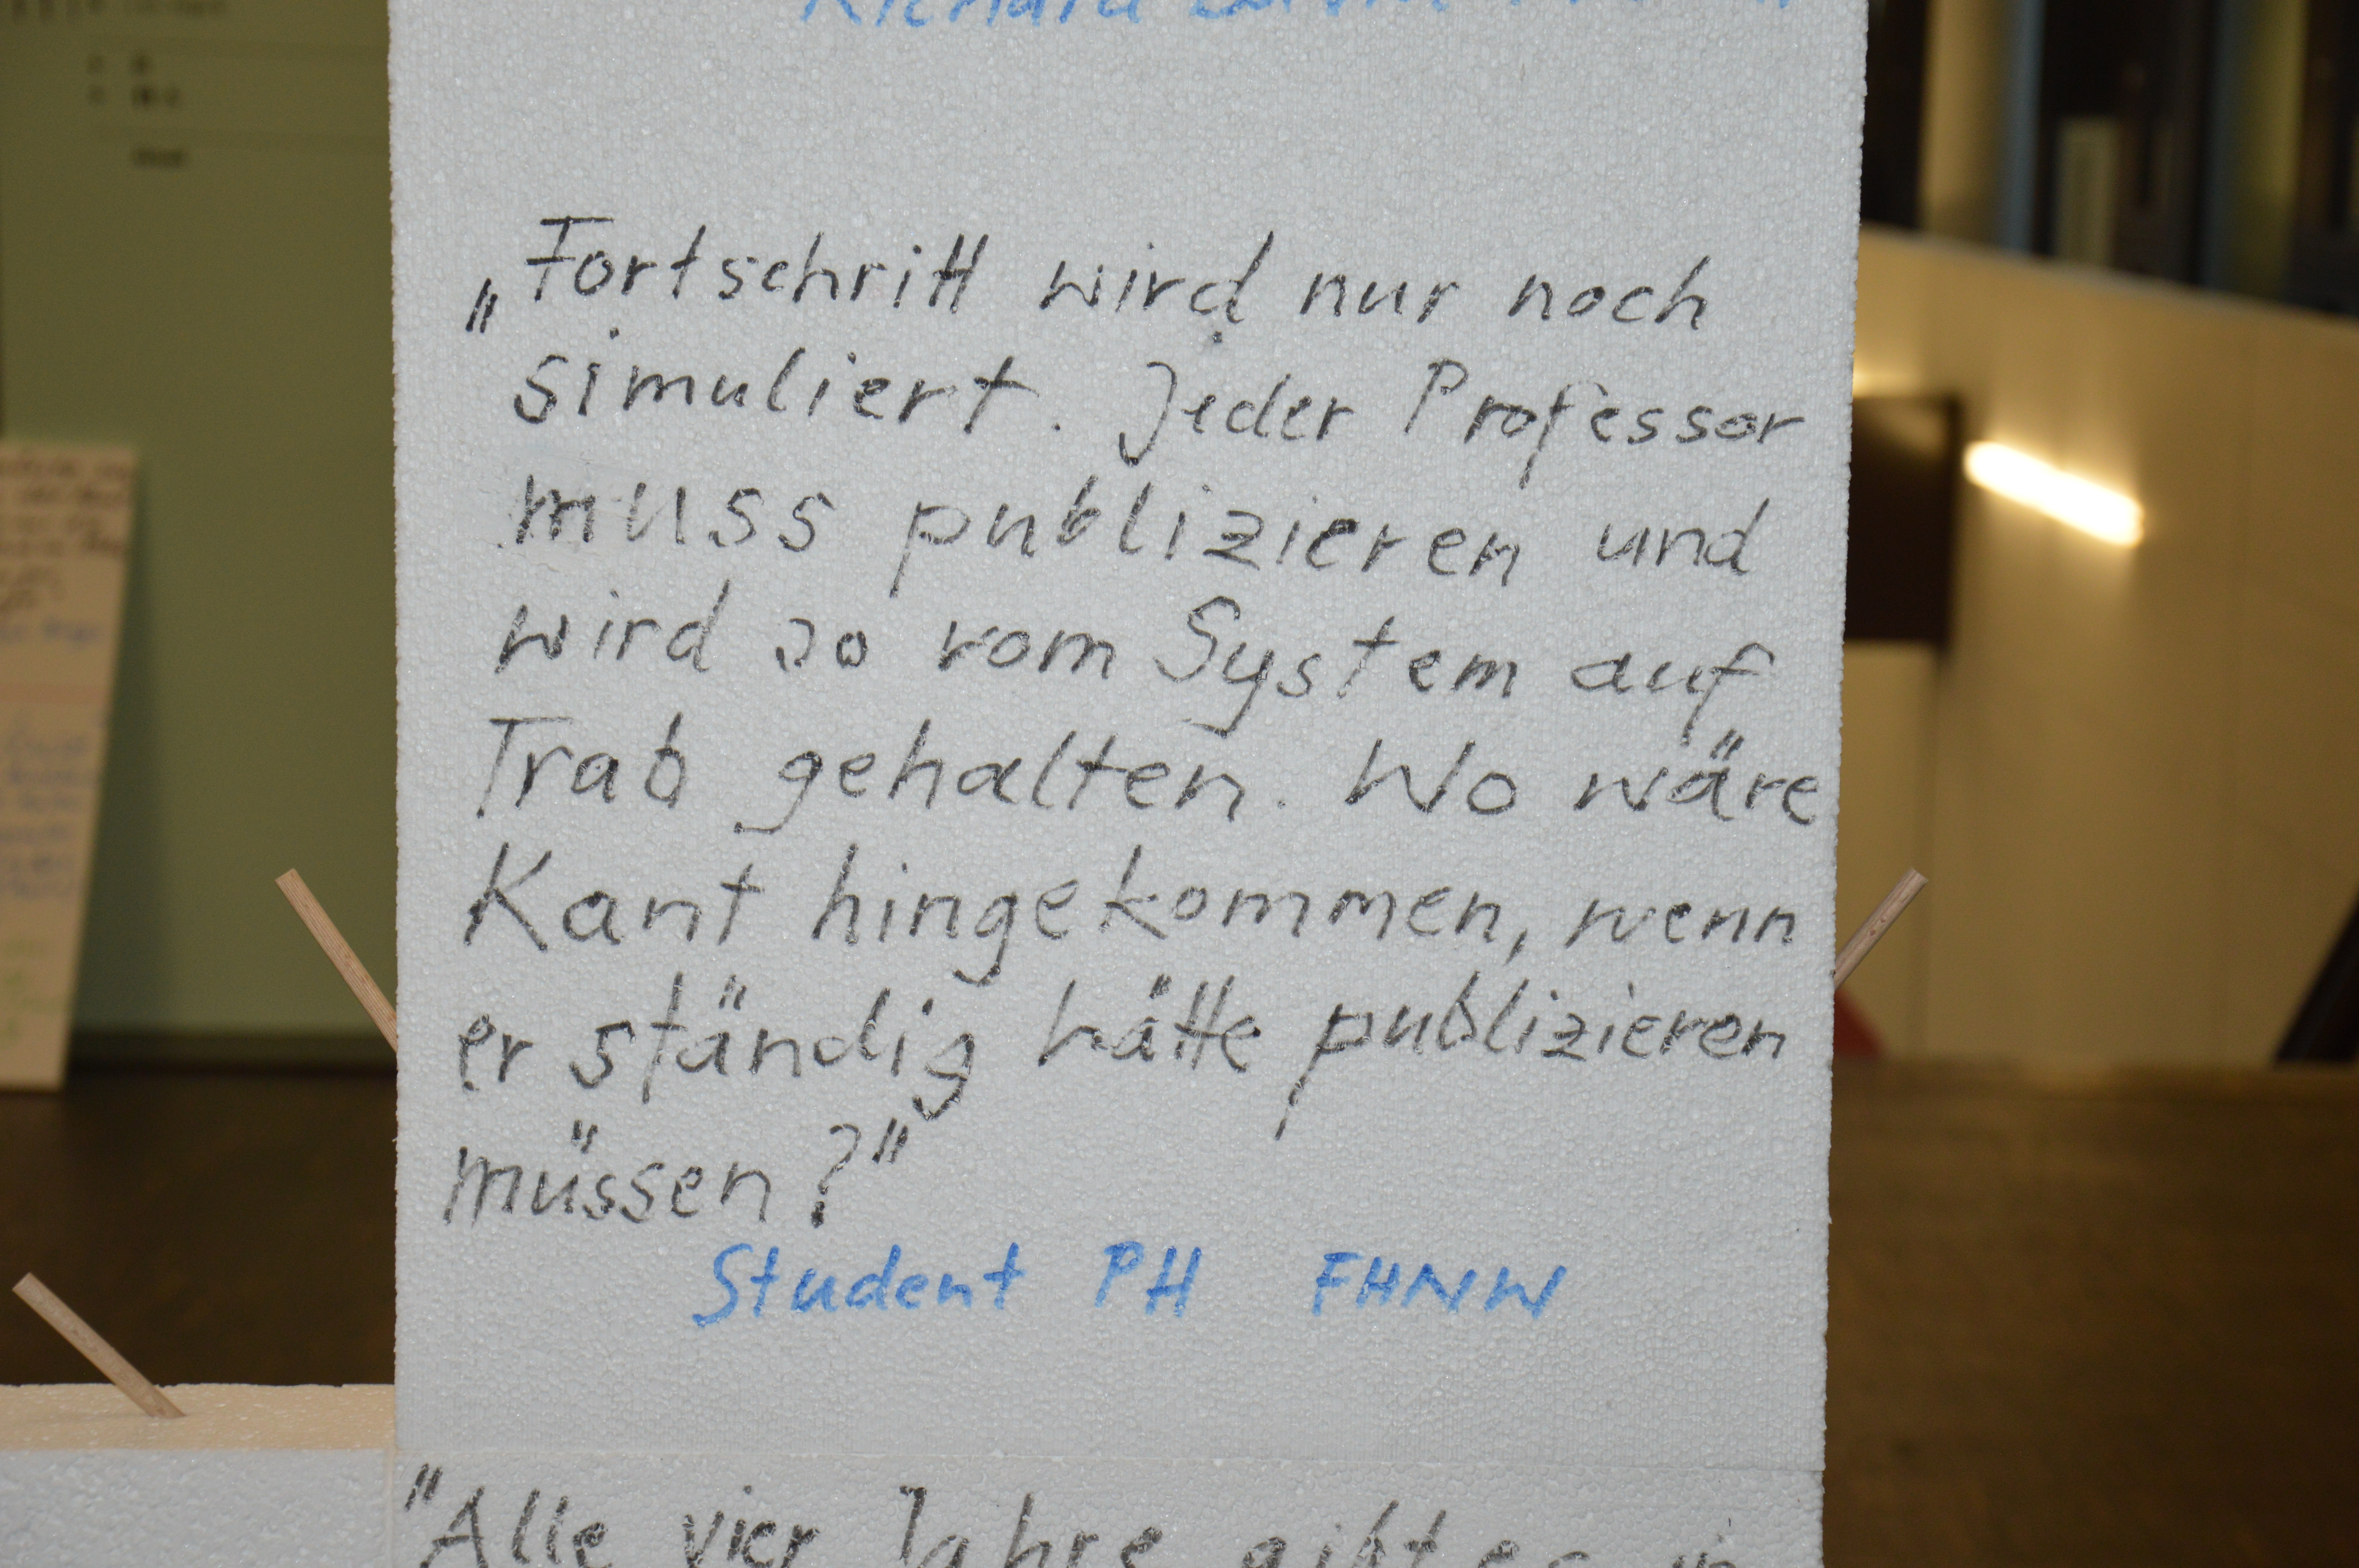 „Fortschritt wird nur noch
simuliert. Jeder Professor
muss publizieren und
wird so vom System auf
Trab gehalten. Wo wäre
Kant hingekommen, wenn
er ständig hätte publizieren
müssen?"
Student PH FHNW
"Alle vier Jahre gibt es in